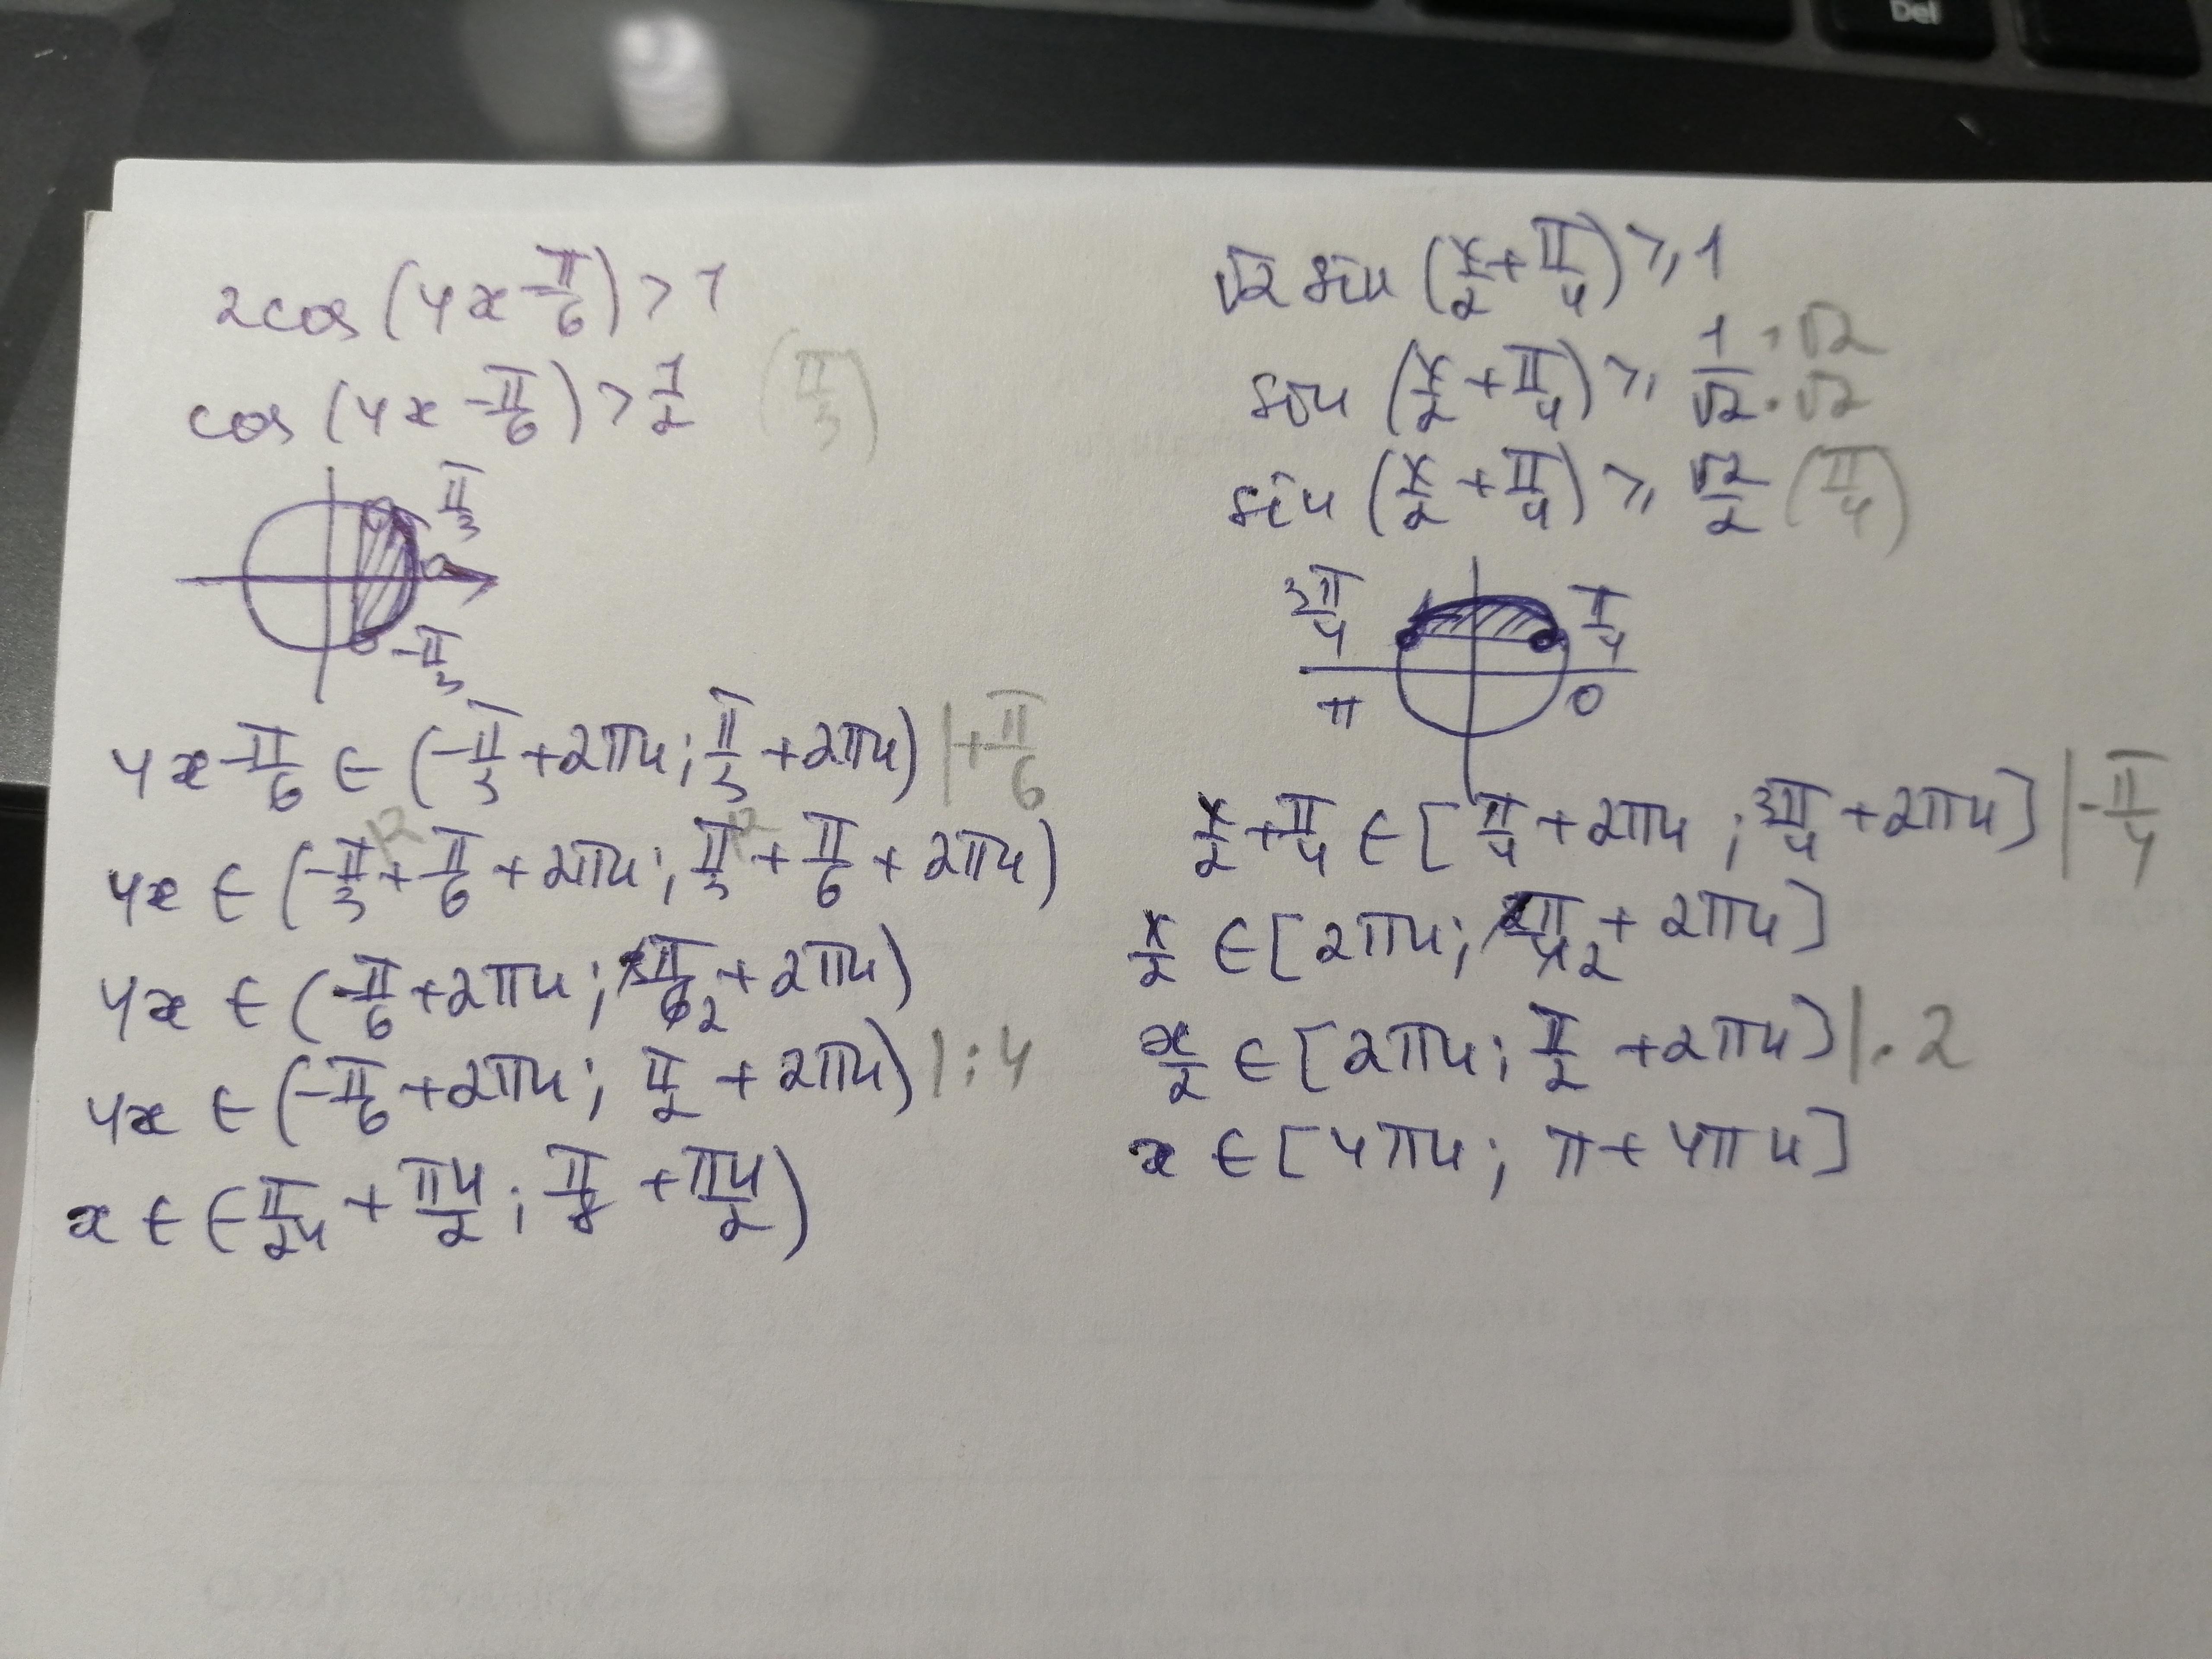 Del
2cos(4x-π/6)>1
cos(4x-π/6)>1/2 (π/3)
π/3
0
-π/3
4x-π/6 ∈ (-π/3+2πn; π/3+2πn) |+π/6
4x ∈ (-π/3+π/6+2πn; π/3+π/6+2πn)
4x ∈ (-π/6+2πn; 3π/6 2+2πn)
4x ∈ (-π/6+2πn; π/2+2πn) |:4
x ∈ (-π/24+πn/2; π/8+πn/2)
√2 sin(x/2+π/4)⩾1
sin(x/2+π/4)⩾1/√2 ·√2 ·√2
sin(x/2+π/4)⩾√2/2 (π/4)
3π/4 π/4
π 0
x/2+π/4 ∈ [π/4+2πn; 3π/4+2πn] |-π/4
x/2 ∈ [2πn; 2π/4 2+2πn]
x/2 ∈ [2πn; π/2+2πn] |·2
x ∈ [4πn; π+4πn]